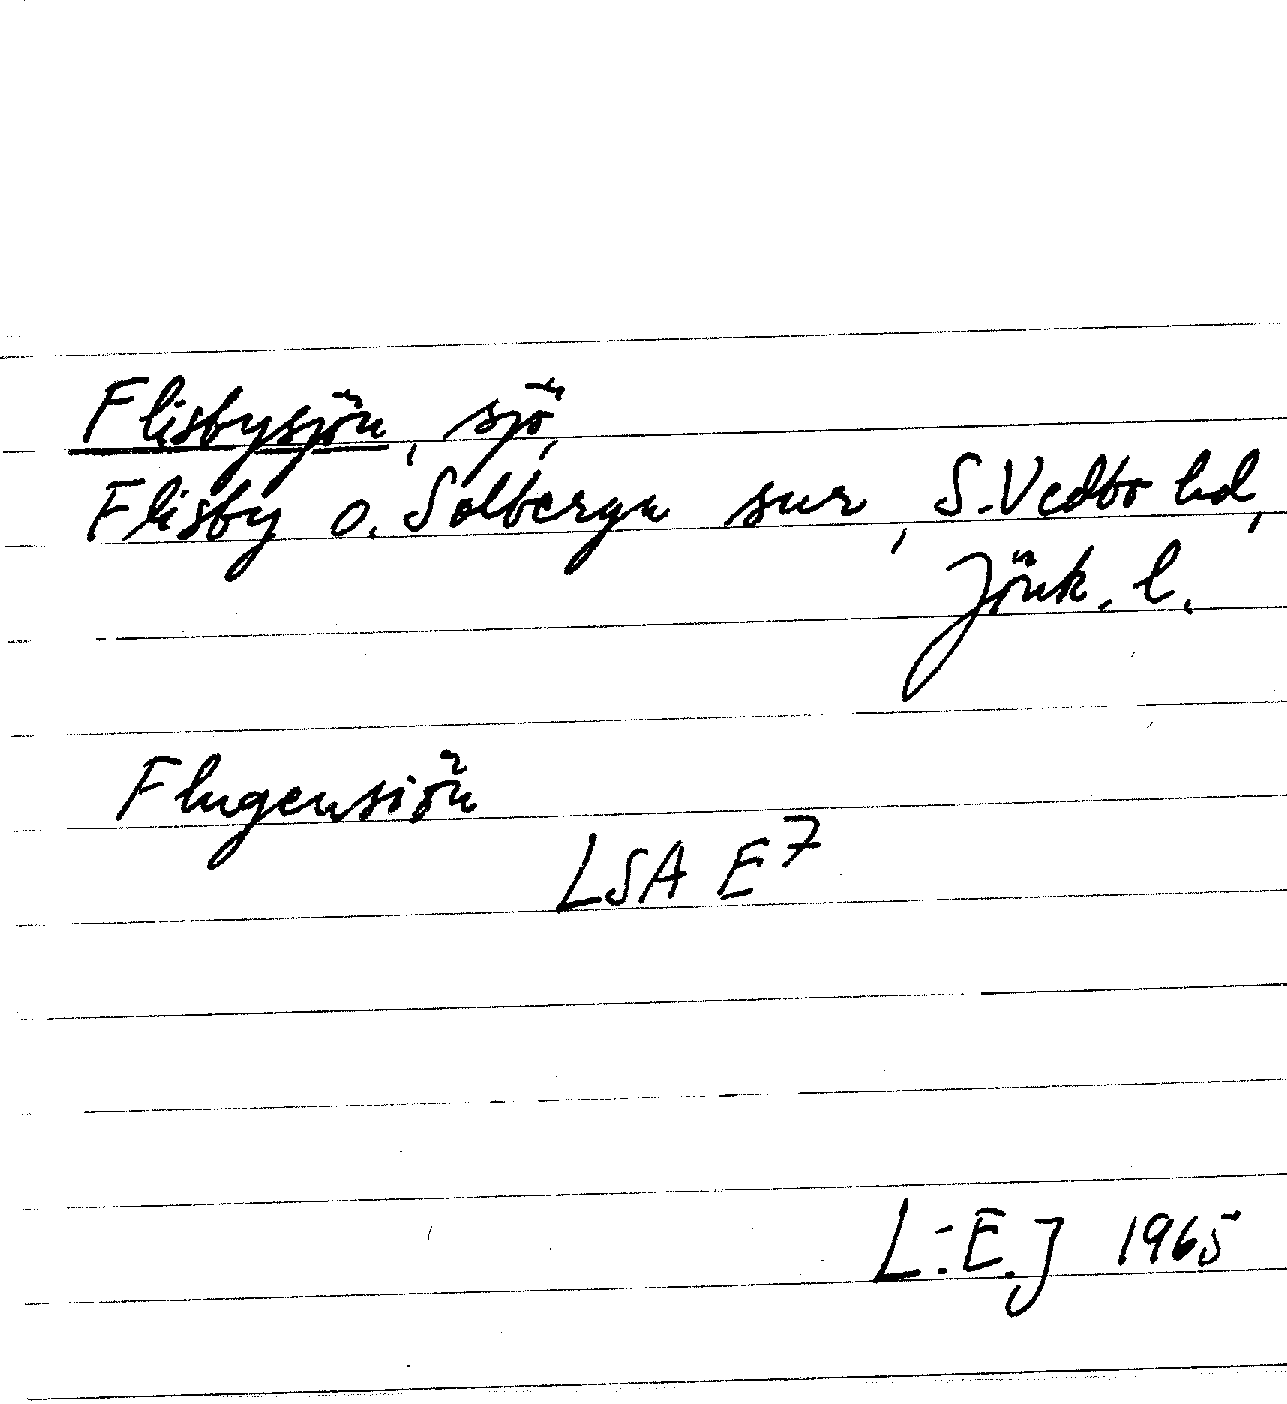 Flisbysjön, sjö,
Flisby o. Solberga snr, S. Vedbo hd,
Jönk. l.
Flugensiön
LSA E7
L-E. J 1965